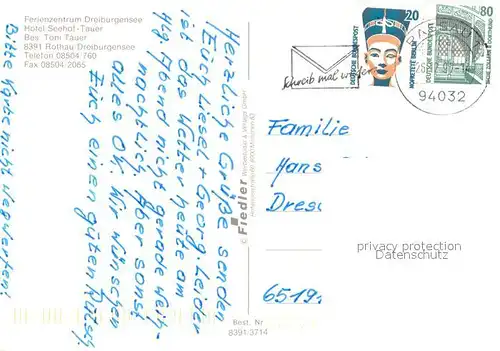 Ferienzentrum Dreiburgensee
Hotel Seehof - Tauer
Bes. Tom Tauer
8391 Rothau Dreiburgensee
Telefon 08504 760
Fax 08504 2065
Herzliche Grüße senden
Euch Liesel + Georg. Leider
ist das Wetter heute am
Hg. Abend nicht gerade weih-
nachtlich, aber sonst
alles ok. Wir wünschen
Euch einen guten Rutsch.
Bitte Karte nicht wegwerfen!
© Fiedler
Best. Nr.
8391 3714
Schreib mal wieder
20
DEUTSCHE BUNDESPOST
NOFRETETE BERLIN
80
DEUTSCHE BUNDESPOST
94032
Familie
Hans
6519
privacy protection
Datenschutz